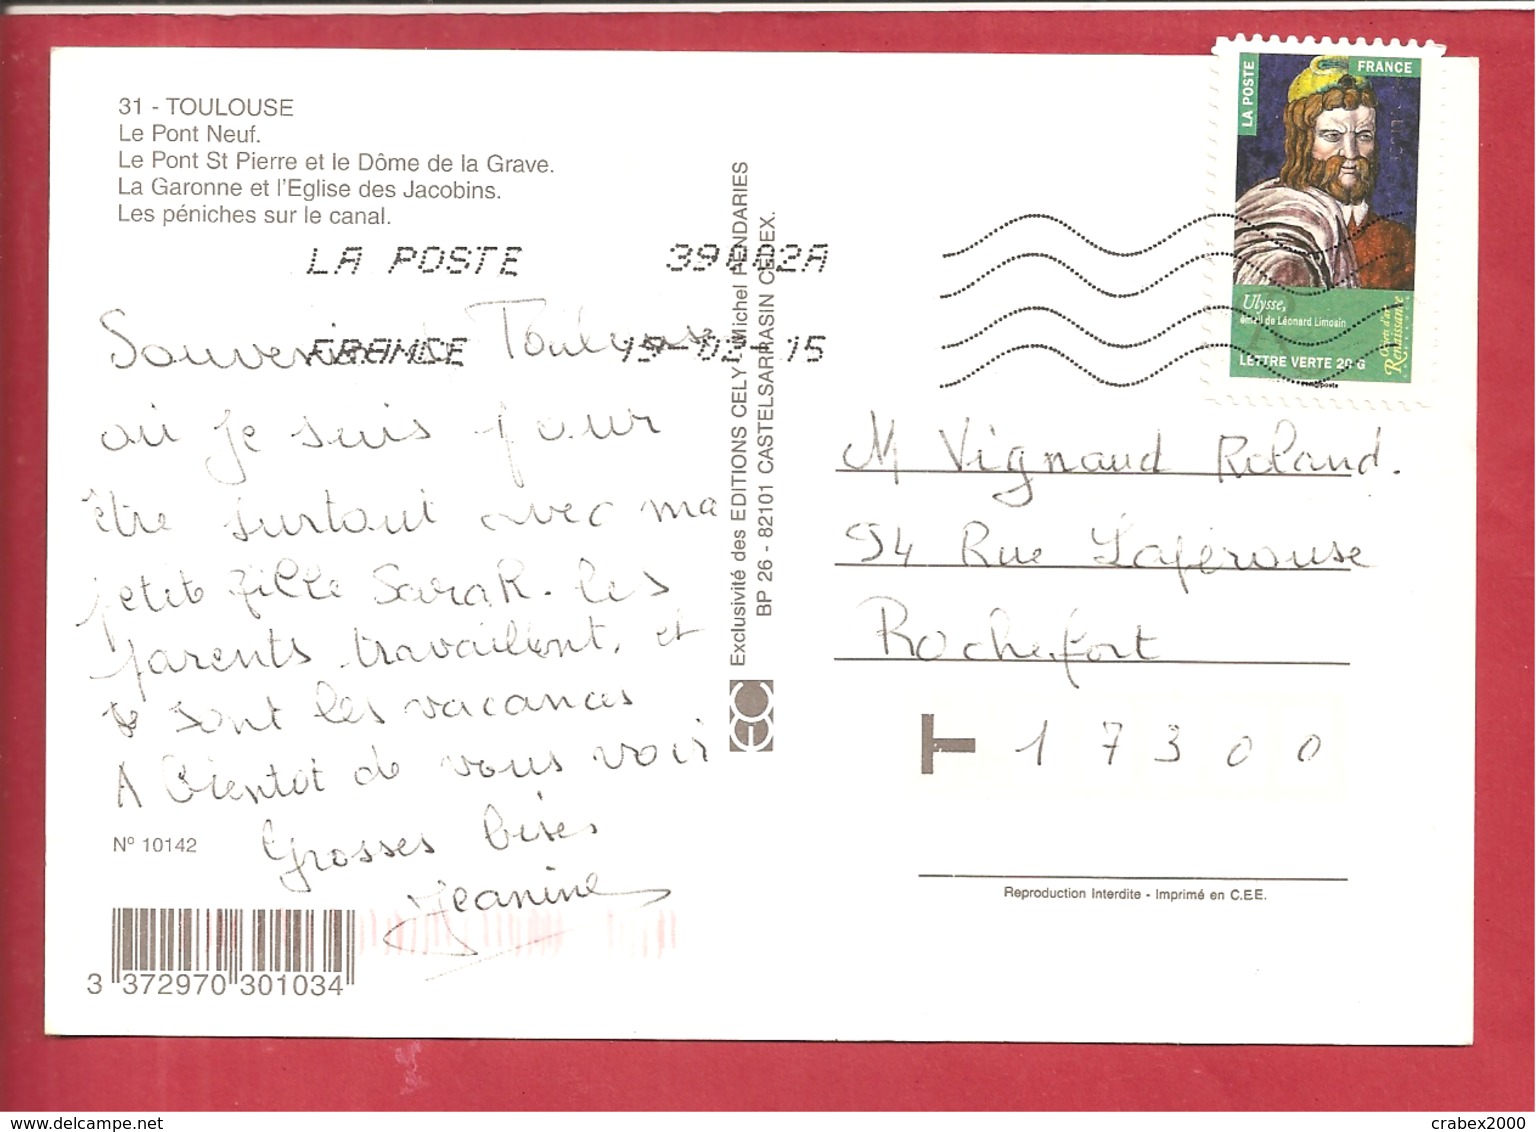 31 - TOULOUSE
Le Pont Neuf.
Le Pont St Pierre et le Dôme de la Grave.
La Garonne et l'Eglise des Jacobins.
Les péniches sur le canal.
LA POSTE 39842A
FRANCE 19-02-15
Souvenir Toulouse
où je suis pour
être surtout avec ma
petite fille Sarah. les
parents travaillent, et
se sont les vacances
A bientot de vous voir
Grosses bises
Jeanine
N° 10142
3 372970 301034
Exclusivité des EDITIONS CELY - Michel PENDARIES
BP 26 - 82101 CASTELSARRASIN CEDEX.
LA POSTE
FRANCE
Ulysse,
émail de Léonard Limosin
Objets d'art
Renaissance
LETTRE VERTE 20 G
Phil@poste
M Vignaud Roland.
54 Rue Laperouse
Rochefort
17300
Reproduction Interdite - Imprimé en C.E.E.
www.delcampe.net
crabex2000